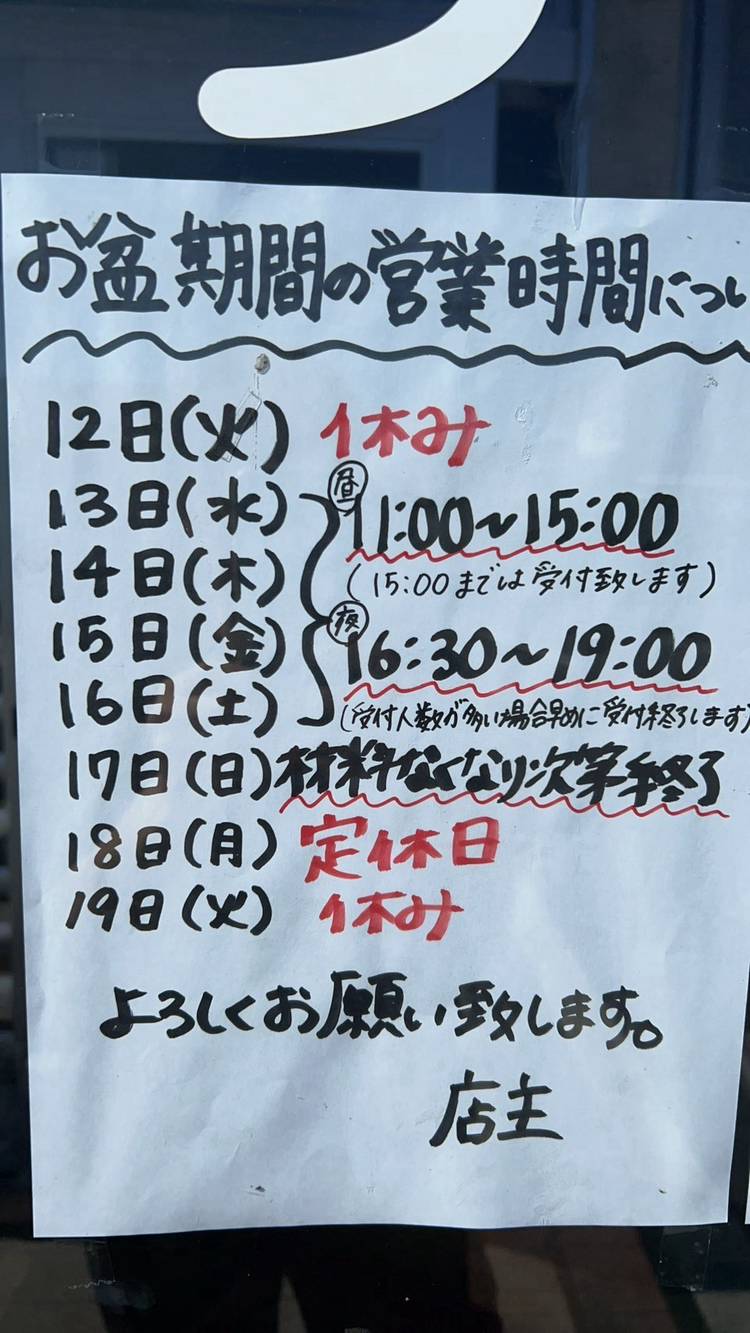 お盆期間の営業時間につい
12日(火) 休み
13日(水) 昼 11:00~15:00
14日(木) (15:00までは受付致します)
15日(金) 夜 16:30~19:00
16日(土) (受付人数が多い場合早めに受付終了します)
17日(日) 材料なくなり次第終了
18日(月) 定休日
19日(火) 休み
よろしくお願い致します。
店主